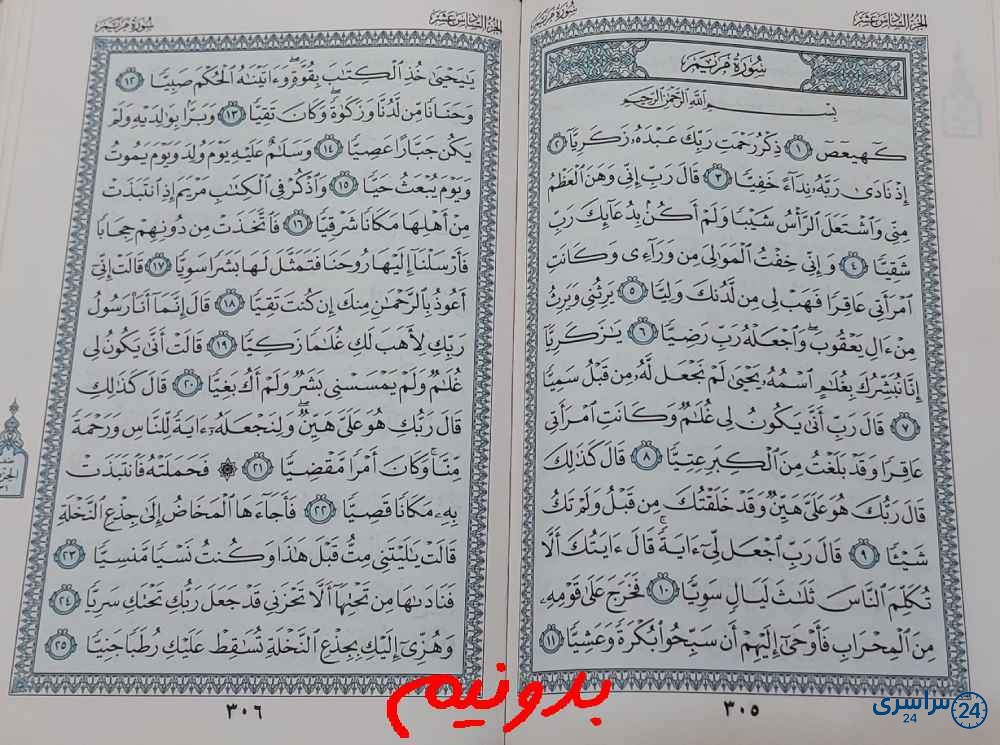 الجزء السادس عشر
سورة مريم
سورة مريم
بسم الله الرحمن الرحيم
كٓهيعٓصٓ ١ ذِكْرُ رَحْمَتِ رَبِّكَ عَبْدَهُۥ زَكَرِيَّآ ٢
إِذْ نَادَىٰ رَبَّهُۥ نِدَآءً خَفِيًّا ٣ قَالَ رَبِّ إِنِّى وَهَنَ ٱلْعَظْمُ
مِنِّى وَٱشْتَعَلَ ٱلرَّأْسُ شَيْبًا وَلَمْ أَكُنۢ بِدُعَآئِكَ رَبِّ
شَقِيًّا ٤ وَإِنِّى خِفْتُ ٱلْمَوَٰلِىَ مِن وَرَآءِى وَكَانَتِ
ٱمْرَأَتِى عَاقِرًا فَهَبْ لِى مِن لَّدُنكَ وَلِيًّا ٥ يَرِثُنِى وَيَرِثُ
مِنْ ءَالِ يَعْقُوبَ ۖ وَٱجْعَلْهُ رَبِّ رَضِيًّا ٦ يَٰزَكَرِيَّآ
إِنَّا نُبَشِّرُكَ بِغُلَٰمٍ ٱسْمُهُۥ يَحْيَىٰ لَمْ نَجْعَل لَّهُۥ مِن قَبْلُ سَمِيًّا
٧ قَالَ رَبِّ أَنَّىٰ يَكُونُ لِى غُلَٰمٌ وَكَانَتِ ٱمْرَأَتِى
عَاقِرًا وَقَدْ بَلَغْتُ مِنَ ٱلْكِبَرِ عِتِيًّا ٨ قَالَ كَذَٰلِكَ
قَالَ رَبُّكَ هُوَ عَلَىَّ هَيِّنٌ وَقَدْ خَلَقْتُكَ مِن قَبْلُ وَلَمْ تَكُ
شَيْـًٔا ٩ قَالَ رَبِّ ٱجْعَل لِّىٓ ءَايَةً ۚ قَالَ ءَايَتُكَ أَلَّا
تُكَلِّمَ ٱلنَّاسَ ثَلَٰثَ لَيَالٍ سَوِيًّا ١٠ فَخَرَجَ عَلَىٰ قَوْمِهِۦ
مِنَ ٱلْمِحْرَابِ فَأَوْحَىٰٓ إِلَيْهِمْ أَن سَبِّحُوا۟ بُكْرَةً وَعَشِيًّا ١١
٣٠٥
الجزء السادس عشر
سورة مريم
يَٰيَحْيَىٰ خُذِ ٱلْكِتَٰبَ بِقُوَّةٍ ۖ وَءَاتَيْنَٰهُ ٱلْحُكْمَ صَبِيًّا ١٢
وَحَنَانًا مِّن لَّدُنَّا وَزَكَوٰةً ۖ وَكَانَ تَقِيًّا ١٣ وَبَرًّۢا بِوَٰلِدَيْهِ وَلَمْ
يَكُن جَبَّارًا عَصِيًّا ١٤ وَسَلَٰمٌ عَلَيْهِ يَوْمَ وُلِدَ وَيَوْمَ يَمُوتُ
وَيَوْمَ يُبْعَثُ حَيًّا ١٥ وَٱذْكُرْ فِى ٱلْكِتَٰبِ مَرْيَمَ إِذِ ٱنتَبَذَتْ
مِنْ أَهْلِهَا مَكَانًا شَرْقِيًّا ١٦ فَٱتَّخَذَتْ مِن دُونِهِمْ حِجَابًا
فَأَرْسَلْنَآ إِلَيْهَا رُوحَنَا فَتَمَثَّلَ لَهَا بَشَرًا سَوِيًّا ١٧ قَالَتْ إِنِّىٓ
أَعُوذُ بِٱلرَّحْمَٰنِ مِنكَ إِن كُنتَ تَقِيًّا ١٨ قَالَ إِنَّمَآ أَنَا۠ رَسُولُ
رَبِّكِ لِأَهَبَ لَكِ غُلَٰمًا زَكِيًّا ١٩ قَالَتْ أَنَّىٰ يَكُونُ لِى
غُلَٰمٌ وَلَمْ يَمْسَسْنِى بَشَرٌ وَلَمْ أَكُ بَغِيًّا ٢٠ قَالَ كَذَٰلِكِ
قَالَ رَبُّكِ هُوَ عَلَىَّ هَيِّنٌ ۖ وَلِنَجْعَلَهُۥٓ ءَايَةً لِّلنَّاسِ وَرَحْمَةً
مِّنَّا ۚ وَكَانَ أَمْرًا مَّقْضِيًّا ٢١ ۞ فَحَمَلَتْهُ فَٱنتَبَذَتْ
بِهِۦ مَكَانًا قَصِيًّا ٢٢ فَأَجَآءَهَا ٱلْمَخَاضُ إِلَىٰ جِذْعِ ٱلنَّخْلَةِ
قَالَتْ يَٰلَيْتَنِى مِتُّ قَبْلَ هَٰذَا وَكُنتُ نَسْيًا مَّنسِيًّا ٢٣
فَنَادَىٰهَا مِن تَحْتِهَآ أَلَّا تَحْزَنِى قَدْ جَعَلَ رَبُّكِ تَحْتَكِ سَرِيًّا ٢٤
وَهُزِّىٓ إِلَيْكِ بِجِذْعِ ٱلنَّخْلَةِ تُسَٰقِطْ عَلَيْكِ رُطَبًا جَنِيًّا ٢٥
٣٠٦
بدونیم
سراسری 24
24